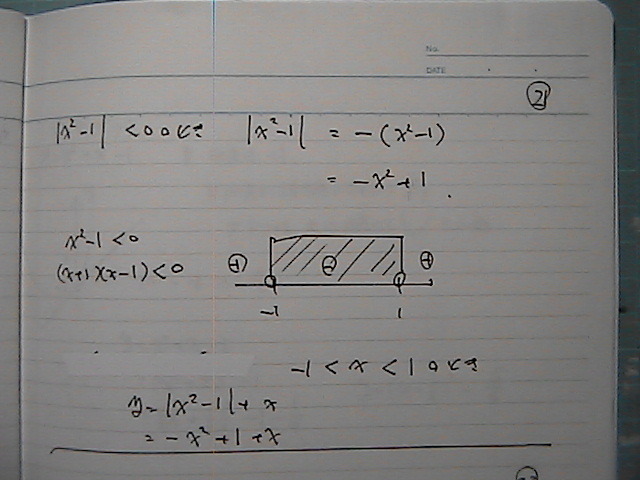 No.
DATE
②
|x²-1| <0のとき |x²-1| = -(x²-1)
= -x²+1.
x²-1<0
(x+1)(x-1)<0
⊕ ⊖ ⊕
-1 1
-1 < x < 1 のとき
y=|x²-1|+x
= -x²+1+x